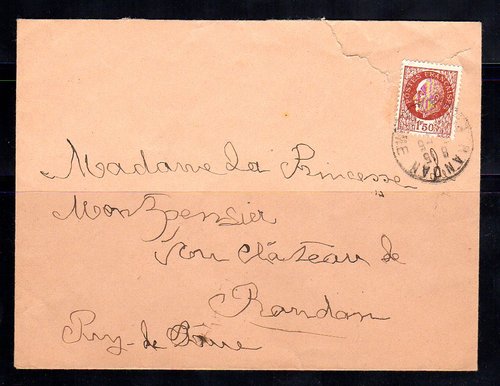 POSTES FRANÇAISES
1F50
RANDAN
Madame La Princesse
Montpensier
Son Château de
Randan
Puy-de Dôme